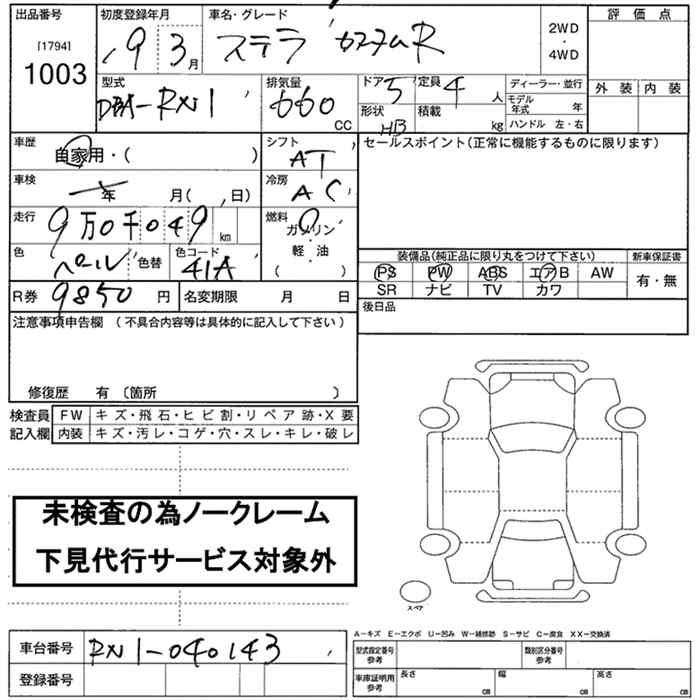 出品番号
[1794]
1003
初度登録年月
19 3 月
車名・グレード
ステラ カスタムR
2WD
・
4WD
評価点
外装 内装
型式
DBA-RN1
排気量
660 CC
ドア 5
定員 4 人
形状 HB
積載 kg
ディーラー・並行
モデル年式 年
ハンドル 左・右
車歴
自家用・( )
シフト
AT
セールスポイント(正常に機能するものに限ります)
車検
年 月( , 日)
冷房
AC
走行
9万0千049 km
燃料
ガソリン
軽・油
( )
色
パール
色替
色コード
41A
装備品(純正品に限り丸をつけて下さい)
新車保証書
PS PW ABS エアB AW
SR ナビ TV カワ
有・無
R券 9850 円
名変期限 月 日
後日品
注意事項申告欄 (不具合内容等は具体的に記入して下さい)
修復歴 有 〔箇所 〕
検査員
記入欄
FW キズ・飛石・ヒビ割・リペア跡・X要
内装 キズ・汚レ・コゲ・穴・スレ・キレ・破レ
未検査の為ノークレーム
下見代行サービス対象外
スペア
車台番号 RN1-040143
登録番号
A−キズ E−エクボ U−凹み W−補修跡 S−サビ C−腐食 XX−交換済
型式指定番号
参考
類別区分番号
参考
車庫証明用
参考
長さ cm
幅 cm
高さ cm